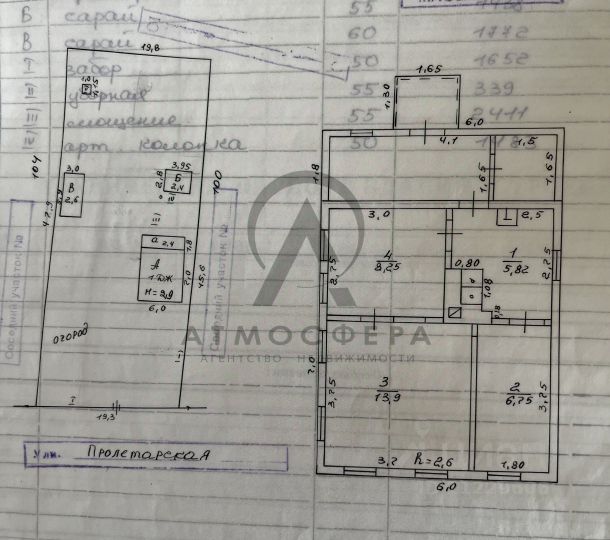 Б сарай 55
В сарай 60 1772
I забор 50 1652
уборная 55 339
мощение 55 2411
арт. колонка 50
19,8
104
100
1,0
3,0
В
2,6
42,9
3,95
Б
2,4
2,8
а 2,4
1,8
А
1 ЭЖ
Н=2,9
7,0
6,0
45,6
ОГОРОД
I
19,3
Соседний участок №
Соседний участок №
ул. ПРОЛЕТАРСКАЯ
1,65
1,30
6,0
4,1
1,5
1,8
1,65
1,65
3,0
2,5
4
8,25
2,75
0,80
1
5,82
2,25
1,08
0,18
7,0
3
13,9
3,75
2
6,75
3,75
3,7
h=2,6
1,80
6,0
АТМОСФЕРА
АГЕНТСТВО НЕДВИЖИМОСТИ